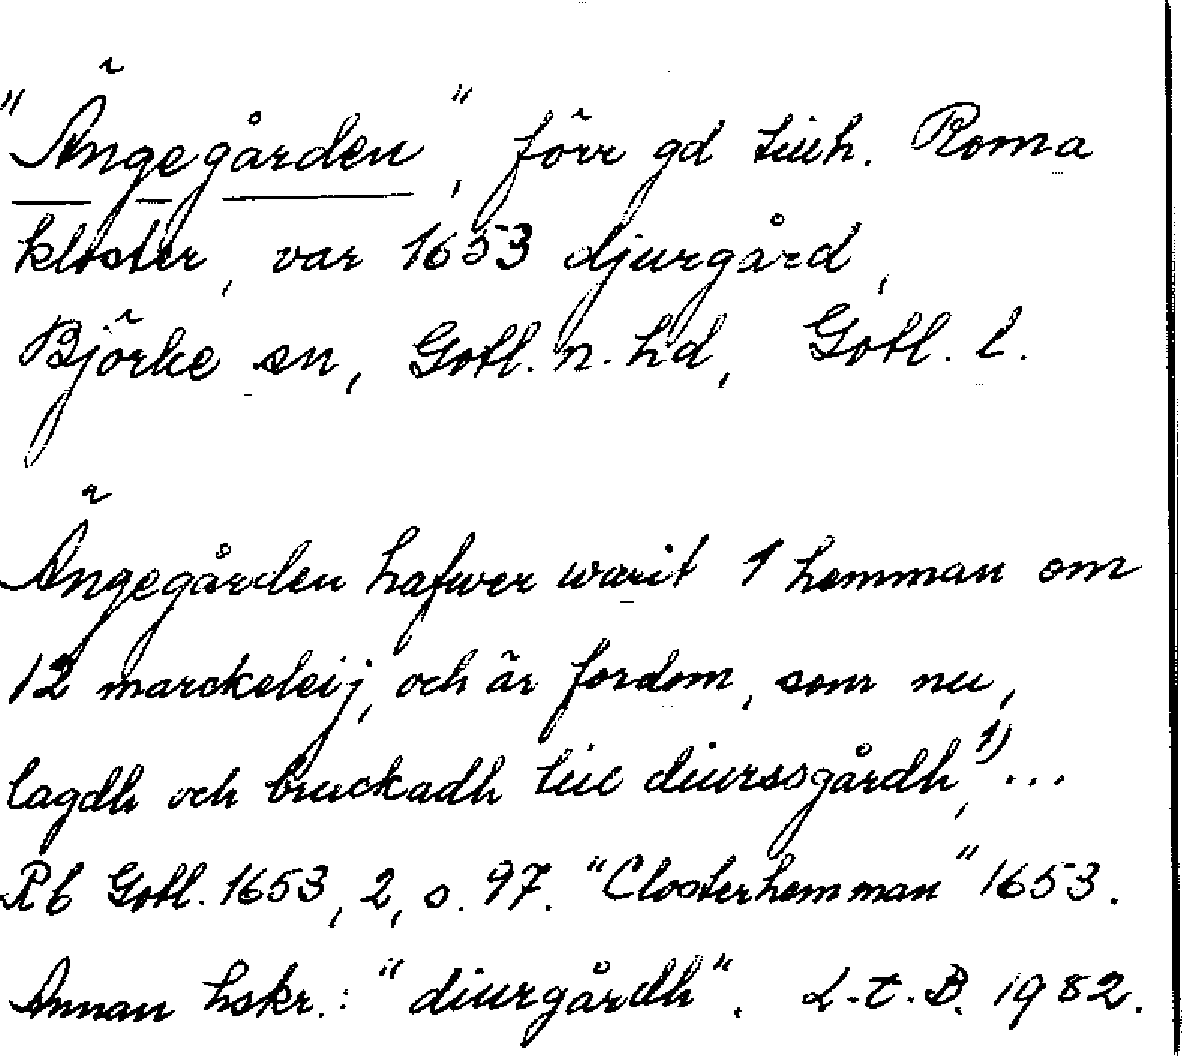 "Ängegården", förr gd tillh. Roma
kloster, var 1653 djurgård,
Björke sn, Gotl. n. hd, Gotl. l.
Ängegården hafwer warit 1 hemman om
12 marckeleij, och är fordom, som nu,
lagdh och bruckadh till diurssgårdh,1) ...
Rb Gotl. 1653, 2, s. 97. "Closterhemman" 1653.
Annan hskr.: "diurgårdh". L.t.B. 1982.